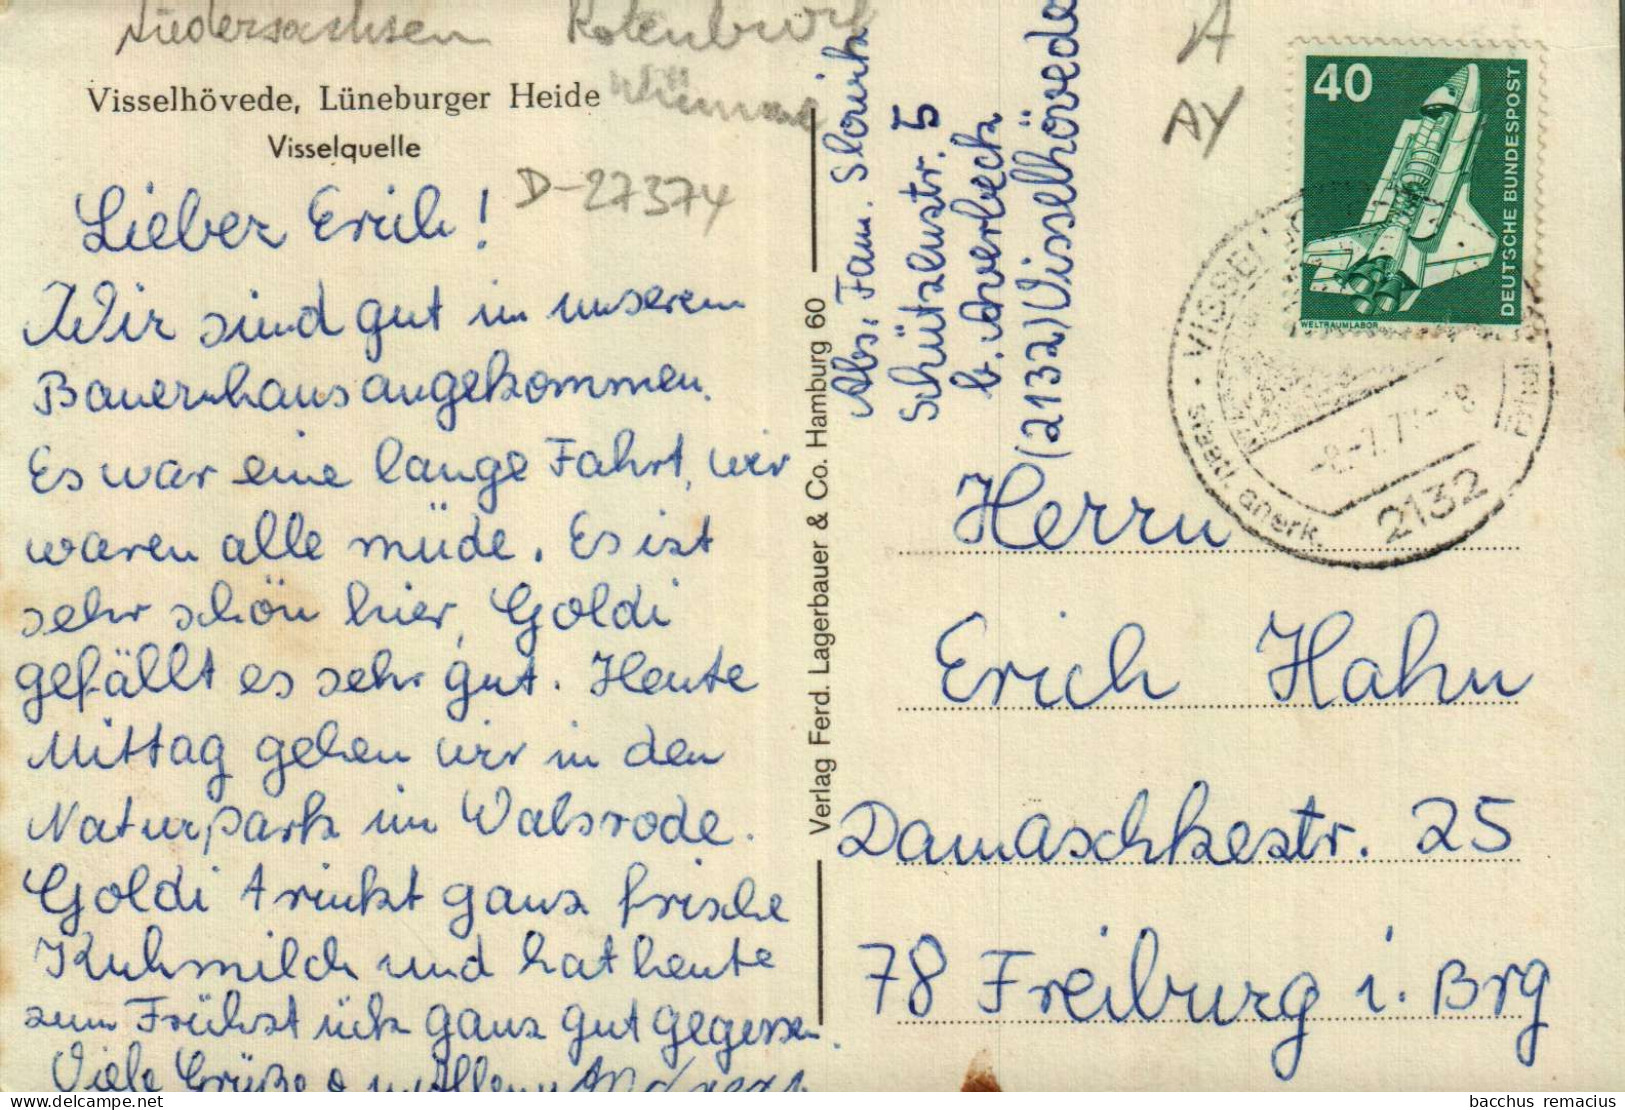 Niedersachsen Rotenburg
Wümme
Visselhövede, Lüneburger Heide
Visselquelle
D-27374
Lieber Erich!
Wir sind gut in unserem
Bauernhaus angekommen.
Es war eine lange Fahrt, wir
waren alle müde. Es ist
sehr schön hier, Goldi
gefällt es sehr gut. Heute
Mittag gehen wir in den
Naturpark in Walsrode.
Goldi trinkt ganz frische
Kuhmilch und hat heute
zum Frühstück ganz gut gegessen.
Viele Grüße
Verlag Ferd. Lagerbauer & Co. Hamburg 60
Abs. Fam. Slowik
Schützenstr. 5
b. Averbeck
(2132) Visselhövede
A
AY
40
DEUTSCHE BUNDESPOST
WELTRAUMLABOR
VISSELHÖVEDE
staatl. anerk.
2132
Herrn
Erich Hahn
Damaschkestr. 25
78 Freiburg i. Brg
bacchus remacius